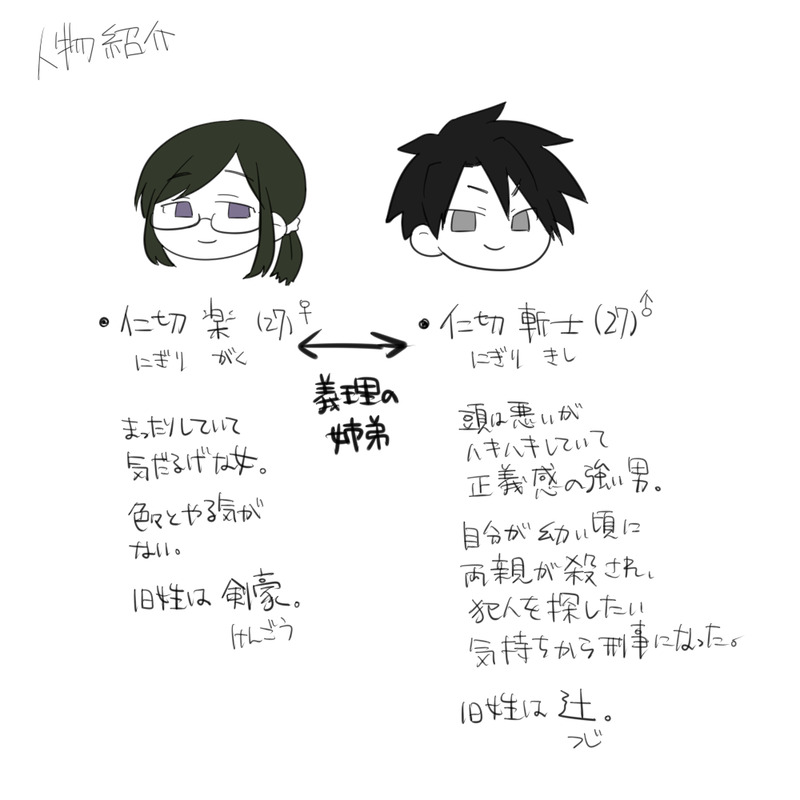 人物紹介
・仁切 楽 (27)♀
にぎり がく
まったりしていて
気だるげな女。
色々とやる気が
ない。
旧姓は 剣豪。
けんごう
義理の
姉弟
・仁切 斬士 (27)♂
にぎり きし
頭は悪いが
ハキハキしていて
正義感の強い男。
自分が幼い頃に
両親が殺され、
犯人を探したい
気持ちから刑事になった。
旧姓は 辻。
つじ